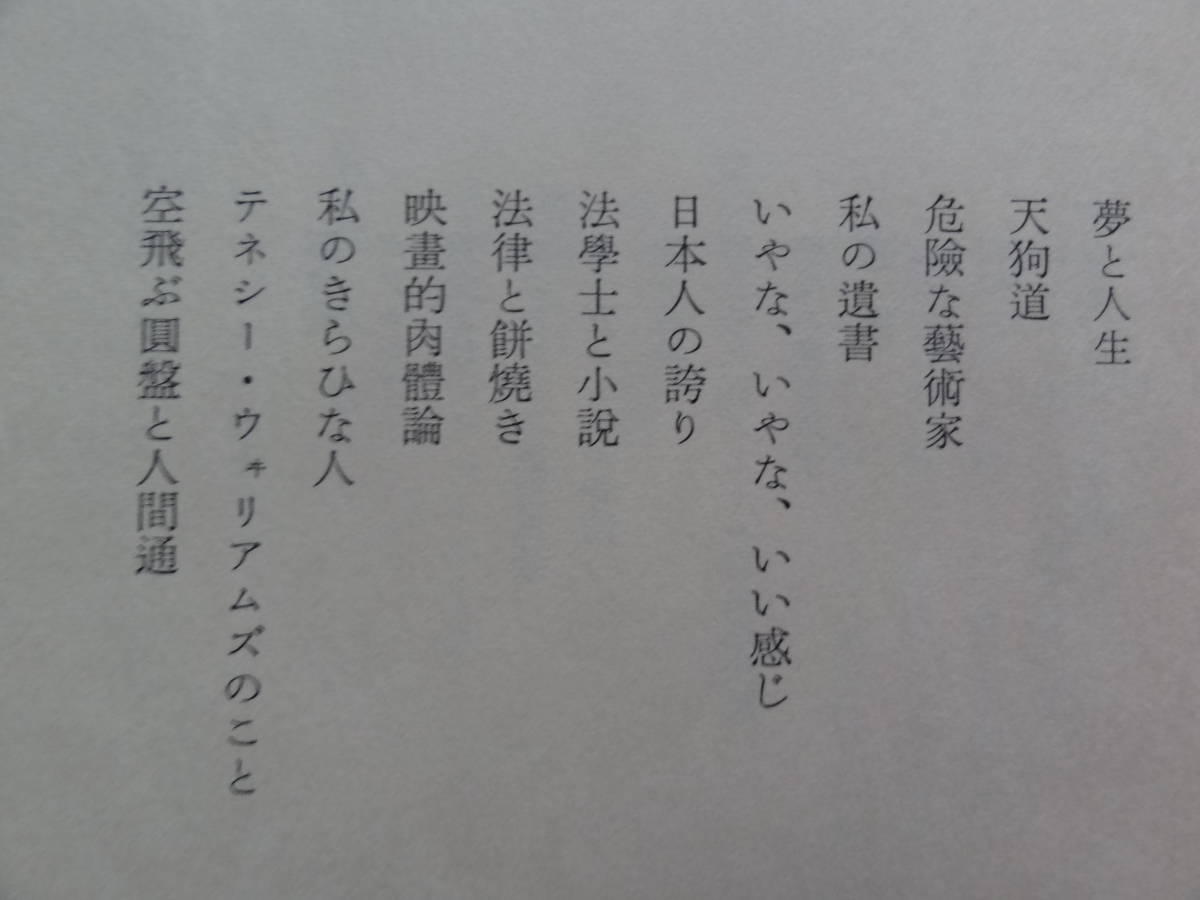 夢と人生
天狗道
危險な藝術家
私の遺書
いやな、いやな、いい感じ
日本人の誇り
法學士と小說
法律と餅燒き
映畫的肉體論
私のきらひな人
テネシー・ウヰリアムズのこと
空飛ぶ圓盤と人間通